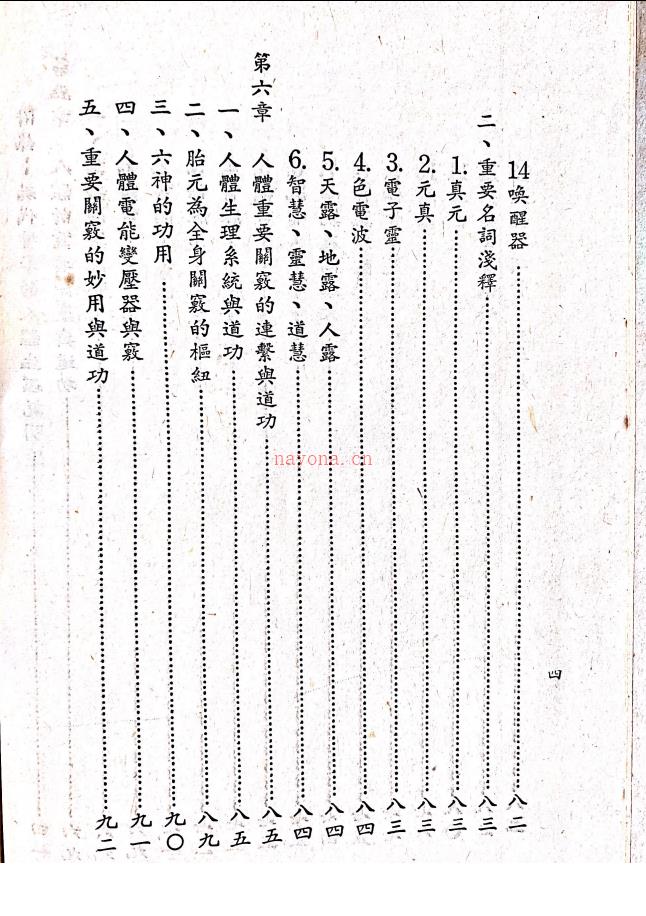 14喚醒器……八二
二、重要名詞淺釋……八三
1.真元……八三
2.元真……八三
3.電子靈……八三
4.色電波……八四
5.天露、地露、人露……八四
6.智慧、靈慧、道慧……八四
第六章 人體重要關竅的連繫與道功……八五
一、人體生理系統與道功……八五
二、胎元為全身關竅的樞紐……八九
三、六神的功用……九〇
四、人體電能變壓器與竅……九一
五、重要關竅的妙用與道功……九二
四
nayona.cn